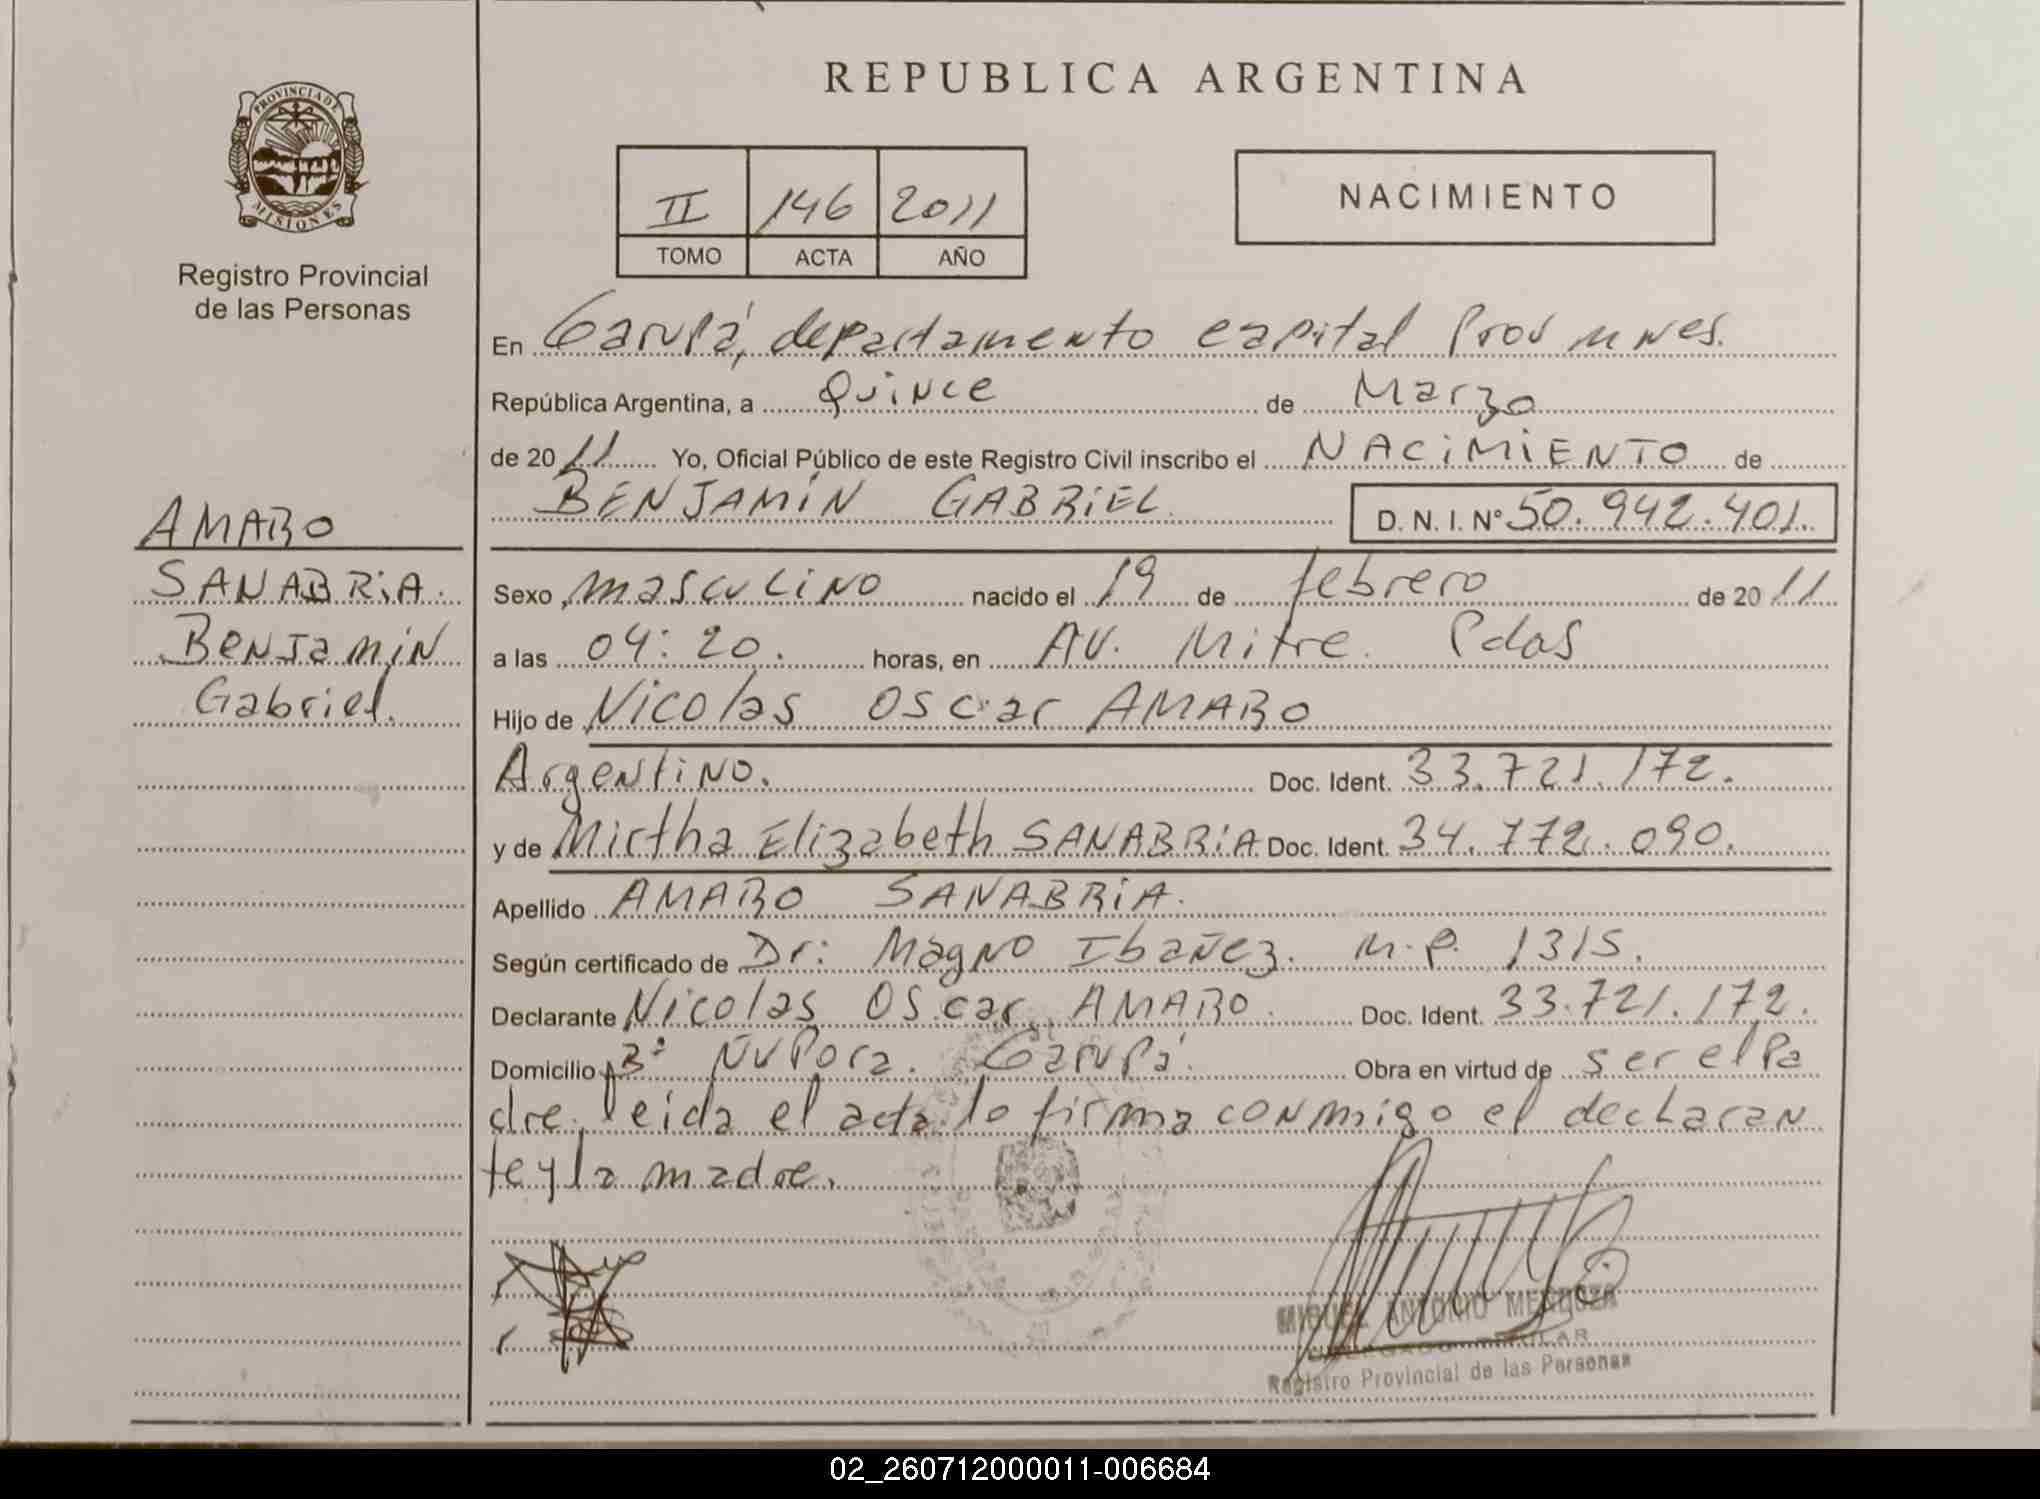 PROVINCIA DE
MISIONES
Registro Provincial
de las Personas
AMARO
SANABRiA.
BENJAMiN
Gabriel.
REPUBLICA ARGENTINA
II 146 2011
TOMO ACTA AÑO
NACIMIENTO
En Garupá, departamento capital Prov mnes.
República Argentina, a Quince de Marzo
de 20 11 Yo, Oficial Público de este Registro Civil inscribo el NACiMiENTO de
BENJAMíN GABRiEL D. N. I. Nº 50.942.401.
Sexo masculino nacido el 19 de febrero de 20 11
a las 04:20. horas, en AV. Mitre. Pdas
Hijo de Nicolas Oscar AMARO
Argentino. Doc. Ident. 33.721.172.
y de Mirtha Elizabeth SANABRiA Doc. Ident. 34.772.090.
Apellido AMARO SANABRiA.
Según certificado de Dr: Magno Ibañez. M.P. 1315.
Declarante Nicolas Oscar AMARO. Doc. Ident. 33.721.172.
Domicilio Bº ÑuPora. Garupá. Obra en virtud de ser el Pa
dre, leida el acta lo firma conmigo el declaran
te y la madre.
MIGUEL ANTONIO MENDOZA
DELEGADO TITULAR
Registro Provincial de las Personas
02_260712000011-006684